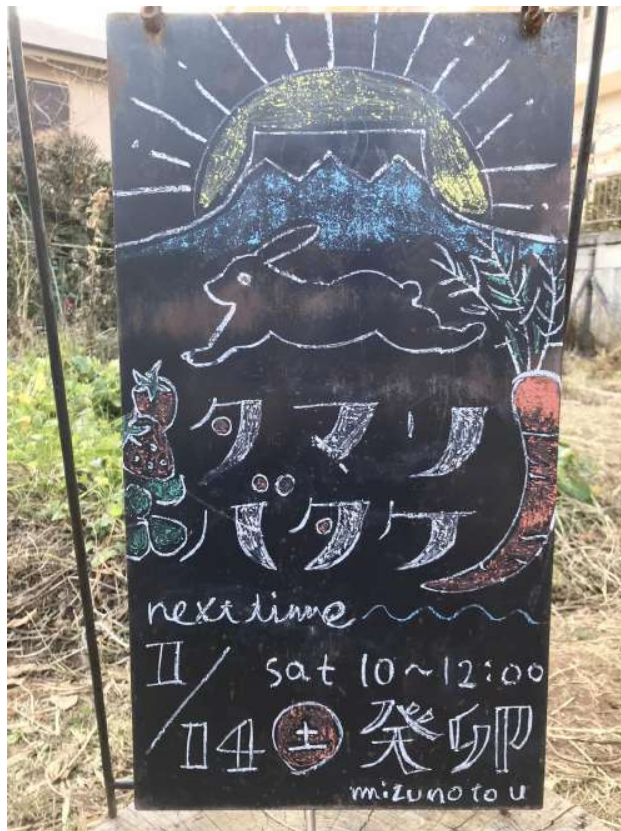 タマリ
バタケ
next time
1/14 ㊏ sat 10~12:00
癸卯
mizunoto u